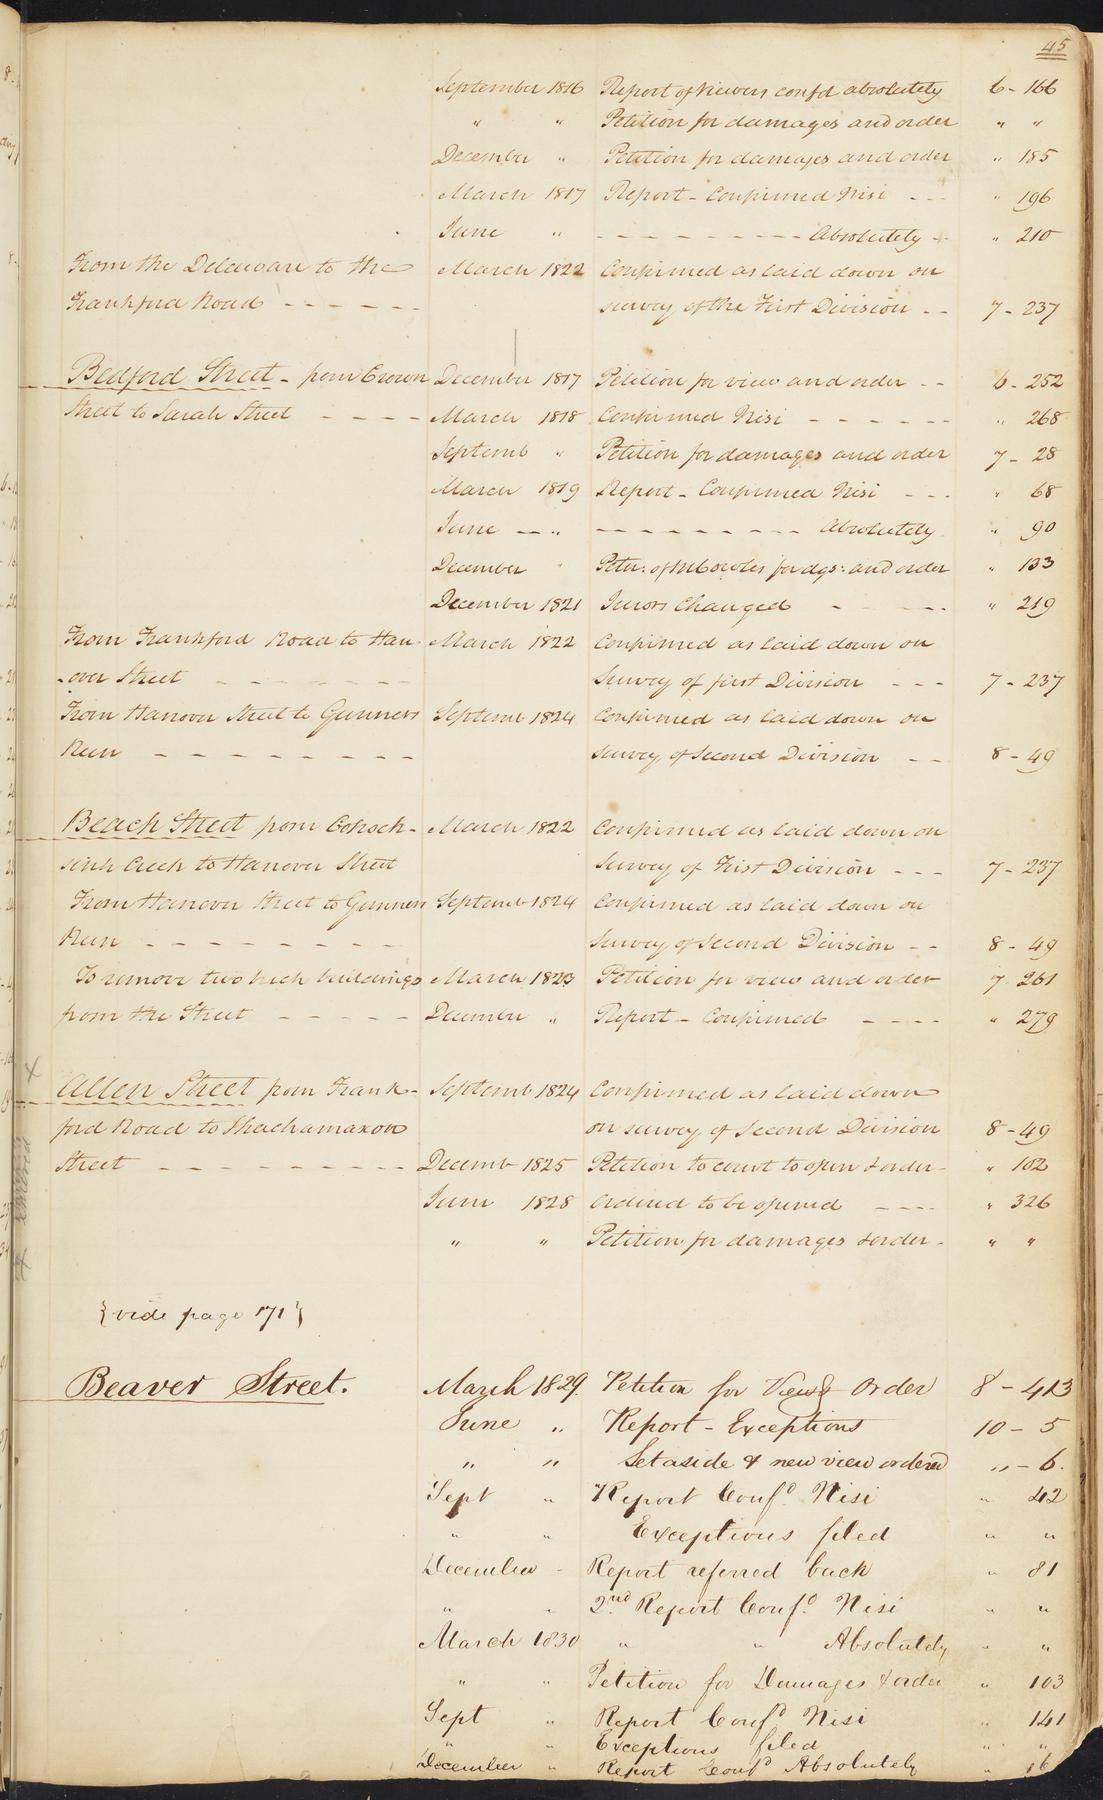 45
September 1816 Report of Viewers confd absolutely 6 - 166
" " Petition for damages and order " "
December " Petition for damages and order " 185
March 1817 Report - Confirmed Nisi - - - " 196
June " - - - - - - - - - Absolutely - " 210
From the Delaware to the March 1822 Confirmed as laid down on
Frankford Road - - - - - - survey of the First Division - - 7 - 237
Bedford Street - from Crown December 1817 Petition for view and order - - 6 - 252
Street to Sarah Street - - - - March 1818 Confirmed Nisi - - - - - - " 268
Septemb " Petition for damages and order 7 - 28
March 1819 Report - Confirmed Nisi - - - " 68
June - - " - - - - - - - - - Absolutely " 90
December " Petn: of M Bowles for dgs: and order " 133
December 1821 Jurors Changed - - - - " 219
From Frankford Road to Han- March 1822 Confirmed as laid down on
-over Street - - - - - - - Survey of first Division - - - 7 - 237
From Hanover Street to Gunners Septemb 1824 Confirmed as laid down on
Run - - - - - - - - - survey of Second Division - - 8 - 49
Beach Street from Cohock- March 1822 Confirmed as laid down on
sink Creek to Hanover Street Survey of First Division - - - 7 - 237
From Hanover Street to Gunners Septemb 1824 Confirmed as laid down on
Run - - - - - - - - Survey of Second Division - - 8 - 49
To remove two brick buildings March 1823 Petition for view and order 7 - 261
from the Street - - - - - December " Report - Confirmed - - - - " 279
Allen Street from Frank- Septemb 1824 Confirmed as laid down
ford Road to Shackamaxon on survey of Second Division 8 - 49
Street - - - - - - - - - - Decemb 1825 Petition to court to open & order - " 102
June 1828 Ordered to be opened - - - - " 326
" " Petition for damages & order - " "
{vide page 171}
Beaver Street. March 1829. Petition for View & Order 8 - 413
June " Report - Exceptions 10 - 5
" " Set aside & new view ordered " - 6.
Sept " Report Confd. Nisi " 42
" " Exceptions filed " "
December - Report referred back " 81
" " 2nd Report Confd. Nisi " "
March 1830 " " Absolutely " "
" " Petition for Damages & order " 103
Sept " Report Confd Nisi " 141
" " Exceptions filed " "
December " Report Confd Absolutely "